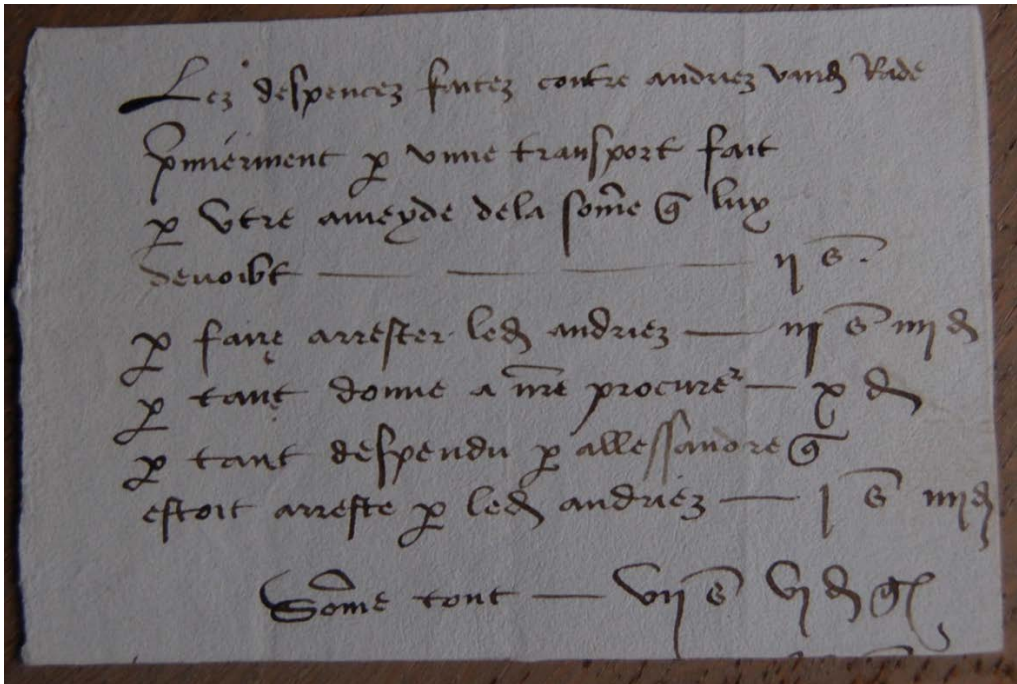 Lez despencez faitez contre andriez vand Rade
p̄miérment p vnne transport fait
p vtre ameyde dela som̄e q̄ luy
devoibt ij s.
p faire arrester led andriez iij s iiij d
p tant donne a nr̄e procurer x d
p tant despendu p allessandre q̄
estoit arreste p led andriez j s iiij d
Som̄e tout vij s vj d gr